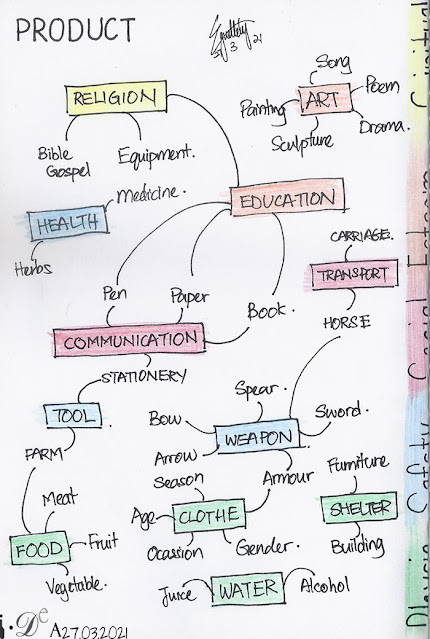 PRODUCT
3
21
RELIGION
Bible
Gospel
Equipment.
Song
ART
Poem
Painting
Sculpture
Drama.
HEALTH
Medicine.
Herbs
EDUCATION
Pen
Paper
Book.
CARRIAGE.
TRANSPORT
HORSE
COMMUNICATION
STATIONERY
TOOL
FARM
Spear.
Bow
Sword.
WEAPON
Arrow
Armour
Season
Age
CLOTHE
Ocassion
Gender.
Furniture
SHELTER
Building
Meat
FOOD
Fruit
Vegetable.
Juice
WATER
Alcohol
A27.03.2021
Spiritual
Esteem
Social
Safety